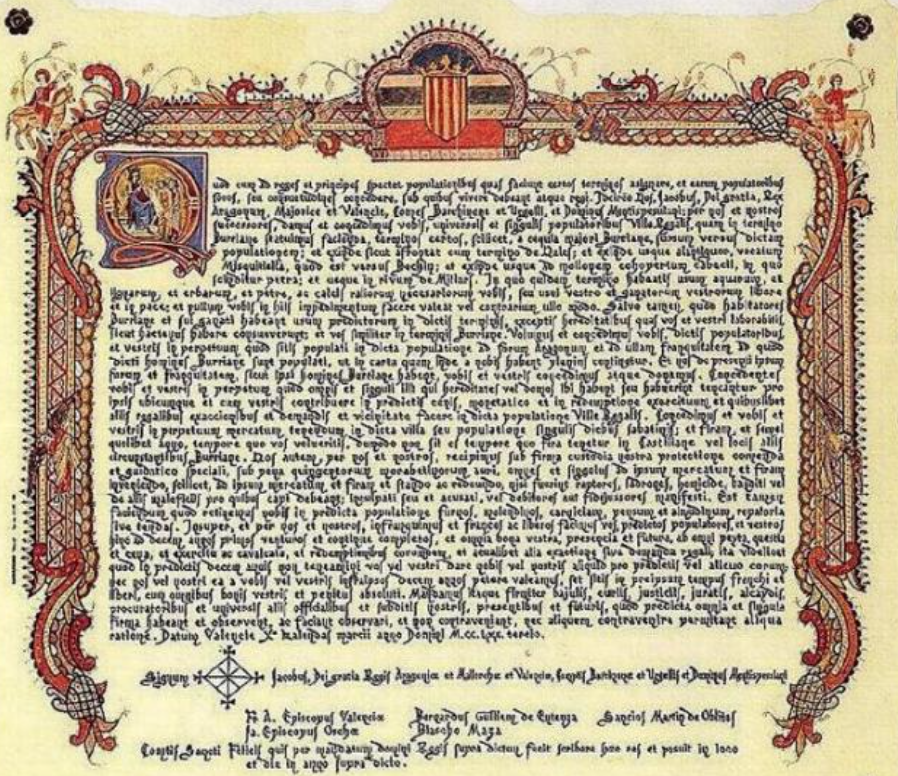 Quod cum ad reges et principes spectet populationibus quas faciunt certos terminos asignare, et earum populatoribus
foros, seu consuetudines concedere, sub quibus vivere debeant atque regi. Idcirco Nos, Jacobus, Dei gratia, Rex
Aragonum, Majorice et Valencie, Comes Barchinone et Urgelli, et Dominus Montispesulani; per nos et nostros
successores, damus et concedimus vobis, universis et singulis populatoribus Ville Regalis, quam in termino
Burriane statuimus facienda, terminos certos, scilicet, a cequia majori Burriane, sursum versus dictam
populationem; et exinde sicut affrontat cum termino de ; et exinde usque
quod est versus Bechin; et exinde usque ad mollonem cohopertum in quo
scinditur petra; et usque in rivum de Millars. In quo quidem termino habeatis usum aquarum, et
lignorum, et erbarum, et petre, ac calcis necessariorum vobis, seu usui vestro et ganatorum vestrorum libere
et in pace; et nullum vobis in hiis impedimentum facere valeat vel contrarium ullo modo. Salvo tamen, quod habitatores
Burriane et sui ganati habeant usum predictorum in dictis terminis, exceptis hereditatibus quas vos et vestri laborabitis,
sicut hactenus habere consueverunt; et vos similiter in terminis Burriane. Volumus et concedimus vobis, dictis populatoribus,
et vestris in perpetuum quod sitis populati in dicta populatione ad forum Aragonum et ad illam franquitatem ad quod
dicti homines Burriane sunt populati, ut in carta quam inde a nobis habent plenius continetur. Et nos de presenti ipsum
forum et franquitatem, sicut ipsi homines Burriane habent, vobis et vestris concedimus atque donamus. Concedentes
vobis et vestris in perpetuum quod omnes et singuli illi qui hereditates vel domos ibi habent seu habuerint teneantur pro
ipsis ubicumque et cum vestris contribuere in predictis monetatico et in redemptione exercituum et quibuslibet
aliis regalibus exaccionibus et demandis et vicinitate facere in dicta populatione Ville Regalis. Concedimus et vobis et
vestris in perpetuum mercatum, tenendum in dicta villa seu populatione singulis diebus sabatinis; et firam, et semel
quolibet anno, tempore quo vos volueritis, dumodo non sit eo tempore quo fira tenetur in Castilione vel locis aliis
circumstantibus Burriane. Nos autem, per nos et nostros, recipimus sub firma custodia nostra protectione comenda
et guidatico speciali, sub pena quingentorum morabetinorum auri, omnes et singulos ad ipsum mercatum et firam
inveniendo, scilicet, ad ipsum mercatum et firam et stando ac redeundo, nisi fuerint raptores, ladrones, homicide, banditi vel
de aliis maleficiis pro quibus capi debeant; inculpati seu et acusati, vel debitores aut fidejussores manifesti. Est tamen
sciendum quod retinemus nobis in predicta populatione furnos, molendinos, carniciam, pensum et almudinum,
sive tendas. Insuper, et per nos et nostros, infranquimus et franchos ac liberos facimus vos predictos populatores, et vestros
hinc ad decem annos primos venturos et continue completos, et omnia bona vestra, presencia et futura, ab omni peyta questia
et cena, et exercitu ac cavalcata, et redemptionibus eorumdem, et qualibet alia exactione sive demanda regali, ita videlicet
quod in predictis decem annis non teneamini vos vel vestri dare nobis vel nostris aliquid pro predictis vel aliquo eorum;
nec nos vel nostri ea a vobis vel vestris infra ipsos decem annos petere valeamus, set sitis in preipsum tempus franchi et
liberi, cum omnibus bonis vestris et penitus absoluti. Mandamus itaque firmiter bajulis, curiis, justiciis, juratis, alcaydis,
procuratoribus et universis aliis officialibus et subditis nostris, presentibus et futuris, quod predicta omnia et singula
firma habeant et observent, ac faciant observari, et non contraveniant, nec aliquem contravenire permitant aliqua
ratione. Datum Valencie X kalendas marcii anno Domini M.CC.LXX. tercio.
Signum Jacobus, Dei gratia Regis Aragonie et et Valencie, Comitis Barchinone et Urgellis et Dominus Montispesulani
Fr. A. Episcopus Valencie Bernardus Guillem de Entenza Sancius Martin de Oblites
Ja. Episcopus Blascho Maza
Comitis Sancti Felicis qui per mandatum domini Regis supra dictum fecit scribere hoc et posuit in loco
et die in anno supra dicto.